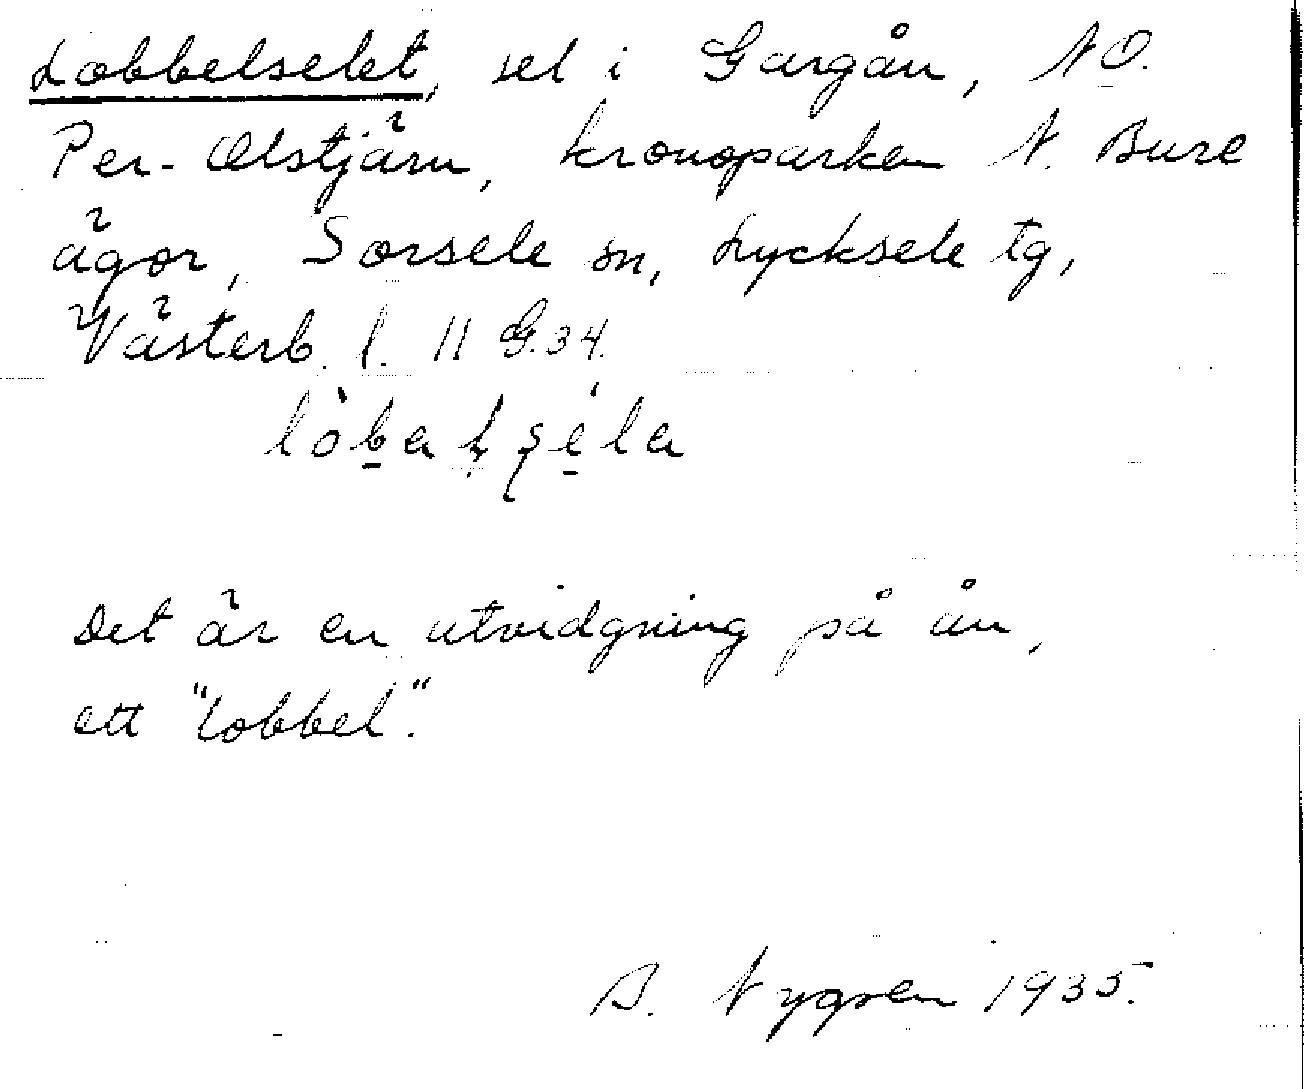 Lobbelselet, sel i Gargån, NO.
Per-Olstjärn, kronoparken N. Bure
ägor, Sorsele sn, Lycksele tg,
Västerb. l. 11 G.34.
Det är en utvidgning på ån,
ett "lobbel".
B. Nygren 1935.